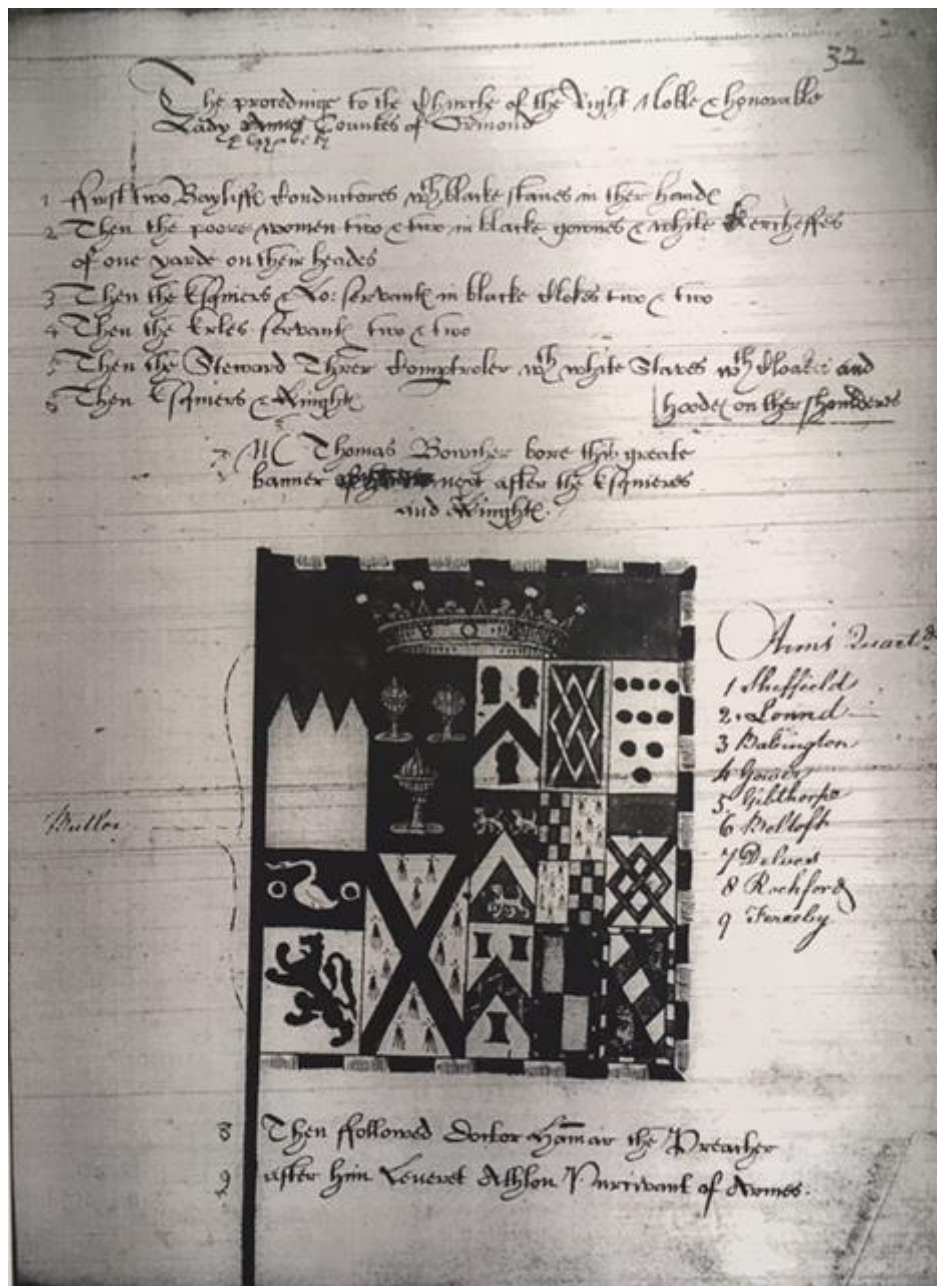 32
The proceedinge to the Churche of the Right Noble & honorable
Lady Countes of Ormond
Elizabeth
1 ffirst two Bayliffes Conductores wth blacke staves in ther handes
2 Then the poore women two & two in blacke gownes & white kercheffes
of one yarde on their heades
3 Then the Esquiers & Lo: servantes in blacke Clokes two & two
4 Then the Erles servantes two & two
5 Then the Steward Threr Comptroler wth white Staves wth and
6 Then Esquiers & Knightes
hoodes on ther shoulderes
7 Mr Thomas Bowcher bore this greate
banner next after the Esquieres
and Knightes.
Arms Quartd
1 Sheffield
2. Lound
3 Babington
4 Gower
5. Gibthorpe
6 Beltoft
7 Delves
8 Rochford
9 Fereby
Butler
8 Then ffollowed Doctor Hamar the Preacher
9 after him Leveret Athlon Pursivant of Armes.